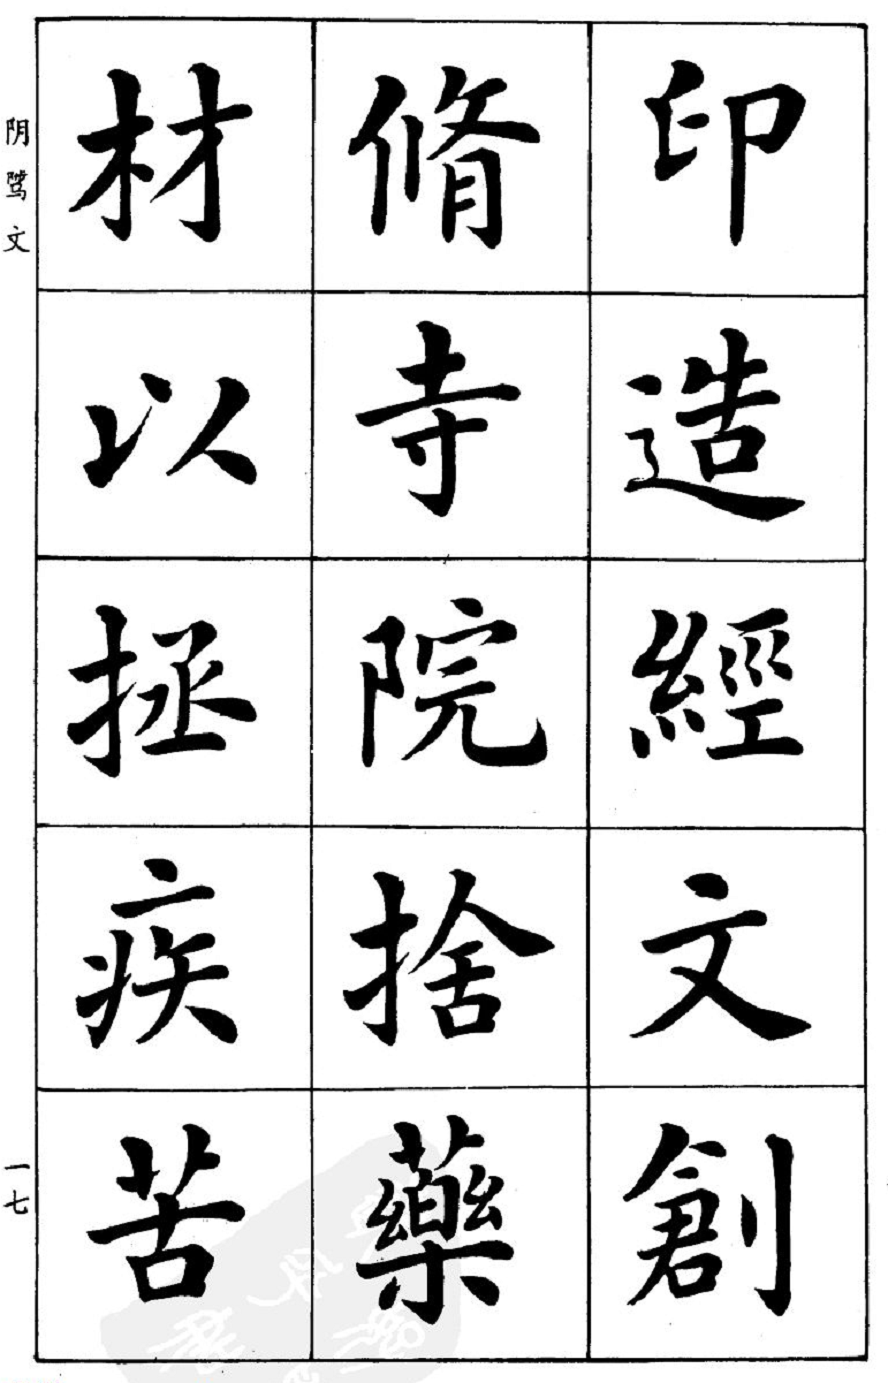 印造經文創
脩寺院捨藥
材以拯疾苦
阴骘文
一七